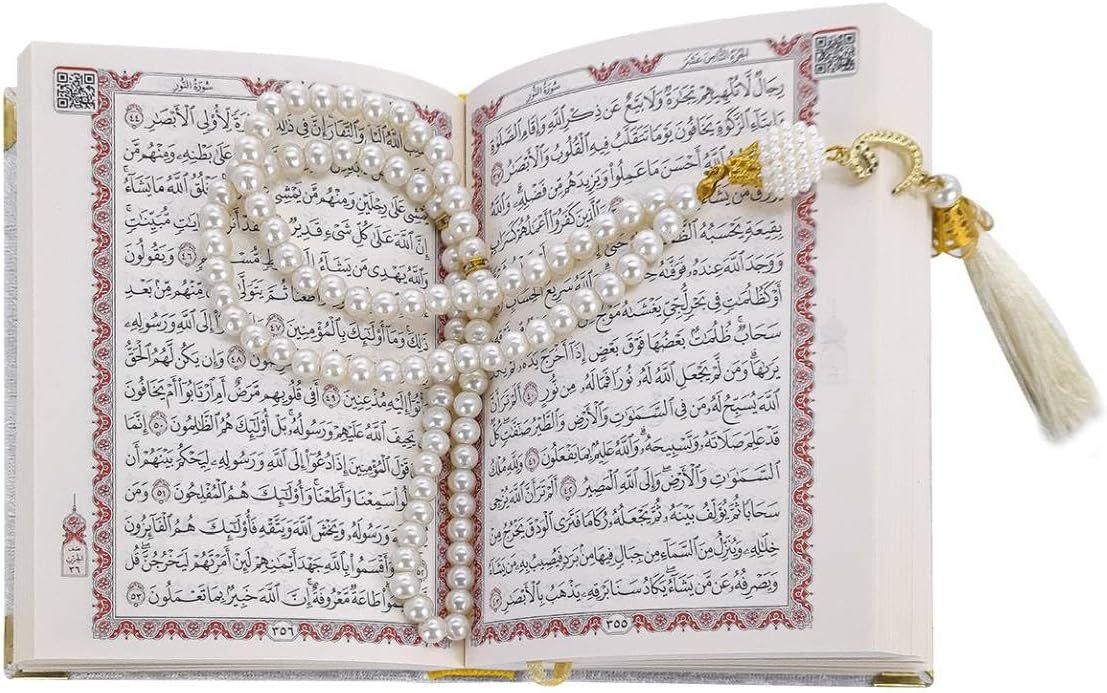 الجُزْءُ الثَّامِنَ عَشَرَ
سُورَةُ النُّورِ
رِجَالٌ لَّا تُلْهِيهِمْ تِجَٰرَةٌ وَلَا بَيْعٌ عَن ذِكْرِ ٱللَّهِ وَإِقَامِ ٱلصَّلَوٰةِ
وَإِيتَآءِ ٱلزَّكَوٰةِ يَخَافُونَ يَوْمًا تَتَقَلَّبُ فِيهِ ٱلْقُلُوبُ وَٱلْأَبْصَٰرُ ٣٧
ٱللَّهُ أَحْسَنَ مَا عَمِلُوا۟ وَيَزِيدَهُم مِّن فَضْلِهِۦ وَٱللَّهُ
يَرْزُقُ مَن يَشَآءُ ٱلَّذِينَ كَفَرُوٓا۟ أَعْمَٰلُهُمْ كَسَرَابٍۭ
بِقِيعَةٍ يَحْسَبُهُ
وَوَجَدَ ٱللَّهَ عِندَهُۥ فَوَفَّىٰهُ ٱللَّهُ سَرِيعُ ٱلْحِسَابِ
أَوْ كَظُلُمَٰتٍ فِى بَحْرٍ لُّجِّىٍّ يَغْشَىٰهُ مَوْجٌ
سَحَابٌ ظُلُمَٰتٌۢ بَعْضُهَا فَوْقَ بَعْضٍ إِذَآ أَخْرَجَ يَدَهُۥ
يَرَىٰهَا وَمَن لَّمْ يَجْعَلِ ٱللَّهُ لَهُۥ نُورًا فَمَا لَهُۥ مِن نُّورٍ ٤٠ أَلَمْ تَرَ أَنَّ
ٱللَّهَ يُسَبِّحُ لَهُۥ مَن فِى ٱلسَّمَٰوَٰتِ وَٱلْأَرْضِ وَٱلطَّيْرُ صَٰٓفَّٰتٍ كُلٌّ
قَدْ عَلِمَ صَلَاتَهُۥ وَتَسْبِيحَهُۥ وَٱللَّهُ عَلِيمٌۢ بِمَا يَفْعَلُونَ ٤١ وَلِلَّهِ مُلْكُ
ٱلسَّمَٰوَٰتِ وَٱلْأَرْضِ وَإِلَى ٱللَّهِ ٱلْمَصِيرُ ٤٢ أَلَمْ تَرَ أَنَّ ٱللَّهَ يُزْجِى
سَحَابًا ثُمَّ يُؤَلِّفُ بَيْنَهُۥ ثُمَّ يَجْعَلُهُۥ رُكَامًا فَتَرَى ٱلْوَدْقَ يَخْرُجُ مِنْ
خِلَٰلِهِۦ وَيُنَزِّلُ مِنَ ٱلسَّمَآءِ مِن جِبَالٍ فِيهَا مِنۢ بَرَدٍ فَيُصِيبُ بِهِۦ مَن يَشَآءُ
وَيَصْرِفُهُۥ عَن مَّن يَشَآءُ يَكَادُ سَنَا بَرْقِهِۦ يَذْهَبُ بِٱلْأَبْصَٰرِ ٤٣
٣٥٥
سُورَةُ النُّورِ
يُقَلِّبُ ٱللَّهُ ٱلَّيْلَ وَٱلنَّهَارَ إِنَّ فِى ذَٰلِكَ لِّأُو۟لِى ٱلْأَبْصَٰرِ ٤٤
عَلَىٰ بَطْنِهِۦ وَمِنْهُم مَّن
يَمْشِى عَلَىٰ رِجْلَيْنِ وَمِنْهُم مَّن يَمْشِى يَخْلُقُ ٱللَّهُ مَا يَشَآءُ
إِنَّ ٱللَّهَ عَلَىٰ كُلِّ شَىْءٍ قَدِيرٌ ءَايَٰتٍ مُّبَيِّنَٰتٍ
وَٱللَّهُ يَهْدِى مَن يَشَآءُ ٤٦ وَيَقُولُونَ
وَأَطَعْنَا ثُمَّ يَتَوَلَّىٰ مِّنْهُم مِّنۢ بَعْدِ
ذَٰلِكَ وَمَآ أُو۟لَٰٓئِكَ بِٱلْمُؤْمِنِينَ ٤٧ إِلَى ٱللَّهِ وَرَسُولِهِۦ
٤٨ وَإِن يَكُن لَّهُمُ ٱلْحَقُّ
يَأْتُوٓا۟ إِلَيْهِ مُذْعِنِينَ ٤٩ أَفِى قُلُوبِهِم مَّرَضٌ أَمِ ٱرْتَابُوٓا۟ أَمْ يَخَافُونَ
يَحِيفَ ٱللَّهُ عَلَيْهِمْ وَرَسُولُهُۥ بَلْ أُو۟لَٰٓئِكَ هُمُ ٱلظَّٰلِمُونَ ٥٠ إِنَّمَا
قَوْلَ ٱلْمُؤْمِنِينَ إِذَا دُعُوٓا۟ إِلَى ٱللَّهِ وَرَسُولِهِۦ لِيَحْكُمَ بَيْنَهُمْ أَن
سَمِعْنَا وَأَطَعْنَا وَأُو۟لَٰٓئِكَ هُمُ ٱلْمُفْلِحُونَ ٥١ وَمَن
وَرَسُولَهُۥ وَيَخْشَ ٱللَّهَ وَيَتَّقْهِ فَأُو۟لَٰٓئِكَ هُمُ ٱلْفَآئِزُونَ
٥٢ وَأَقْسَمُوا۟ بِٱللَّهِ جَهْدَ أَيْمَٰنِهِمْ لَئِنْ أَمَرْتَهُمْ لَيَخْرُجُنَّ قُل
طَاعَةٌ مَّعْرُوفَةٌ إِنَّ ٱللَّهَ خَبِيرٌۢ بِمَا تَعْمَلُونَ ٥٣
نصف
الحزب
٣٦
٣٥٦